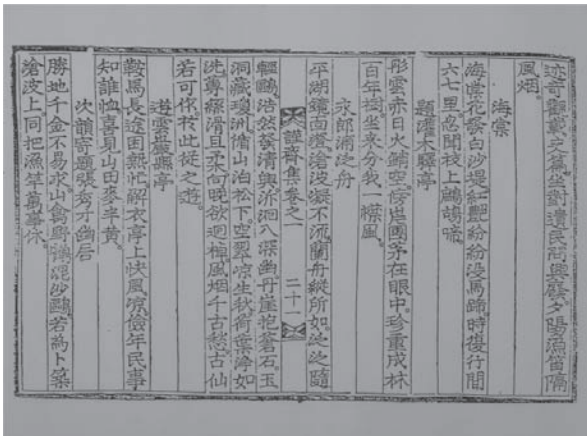 迹奇觀載之篇坐對遺民問興廢夕陽漁笛隔
風烟
海棠
海棠花發白沙堤紅艶紛紛没馬蹄時復行間
六七里忽聞枝上鷓鴣啼
題灌木驛亭
彤雲赤日火鋪空傍岸團茅在眼中珍重成林
百年樹坐來分我一襟風
永郎浦泛舟
平湖鏡面澄滄波凝不流蘭舟縱所如泛泛隨
謹齋集卷之一 二十一
輕鷗浩然發清興泝洄入深幽丹崖抱蒼石玉
洞藏瓊洲循山泊松下空翠凉生秋荷葉淨如
洗蓴絲滑且柔向晚欲迴棹風烟千古愁古仙
若可作於此從之遊
遊雲巖縣亭
鞍馬長途困熱忙解衣亭上快風凉儉年民事
知誰恤喜見山田麥半黄
次韻寄題張秀才幽居
勝地千金不易求山禽野混沙鷗若為卜築
滄波上同把漁竿萬事休